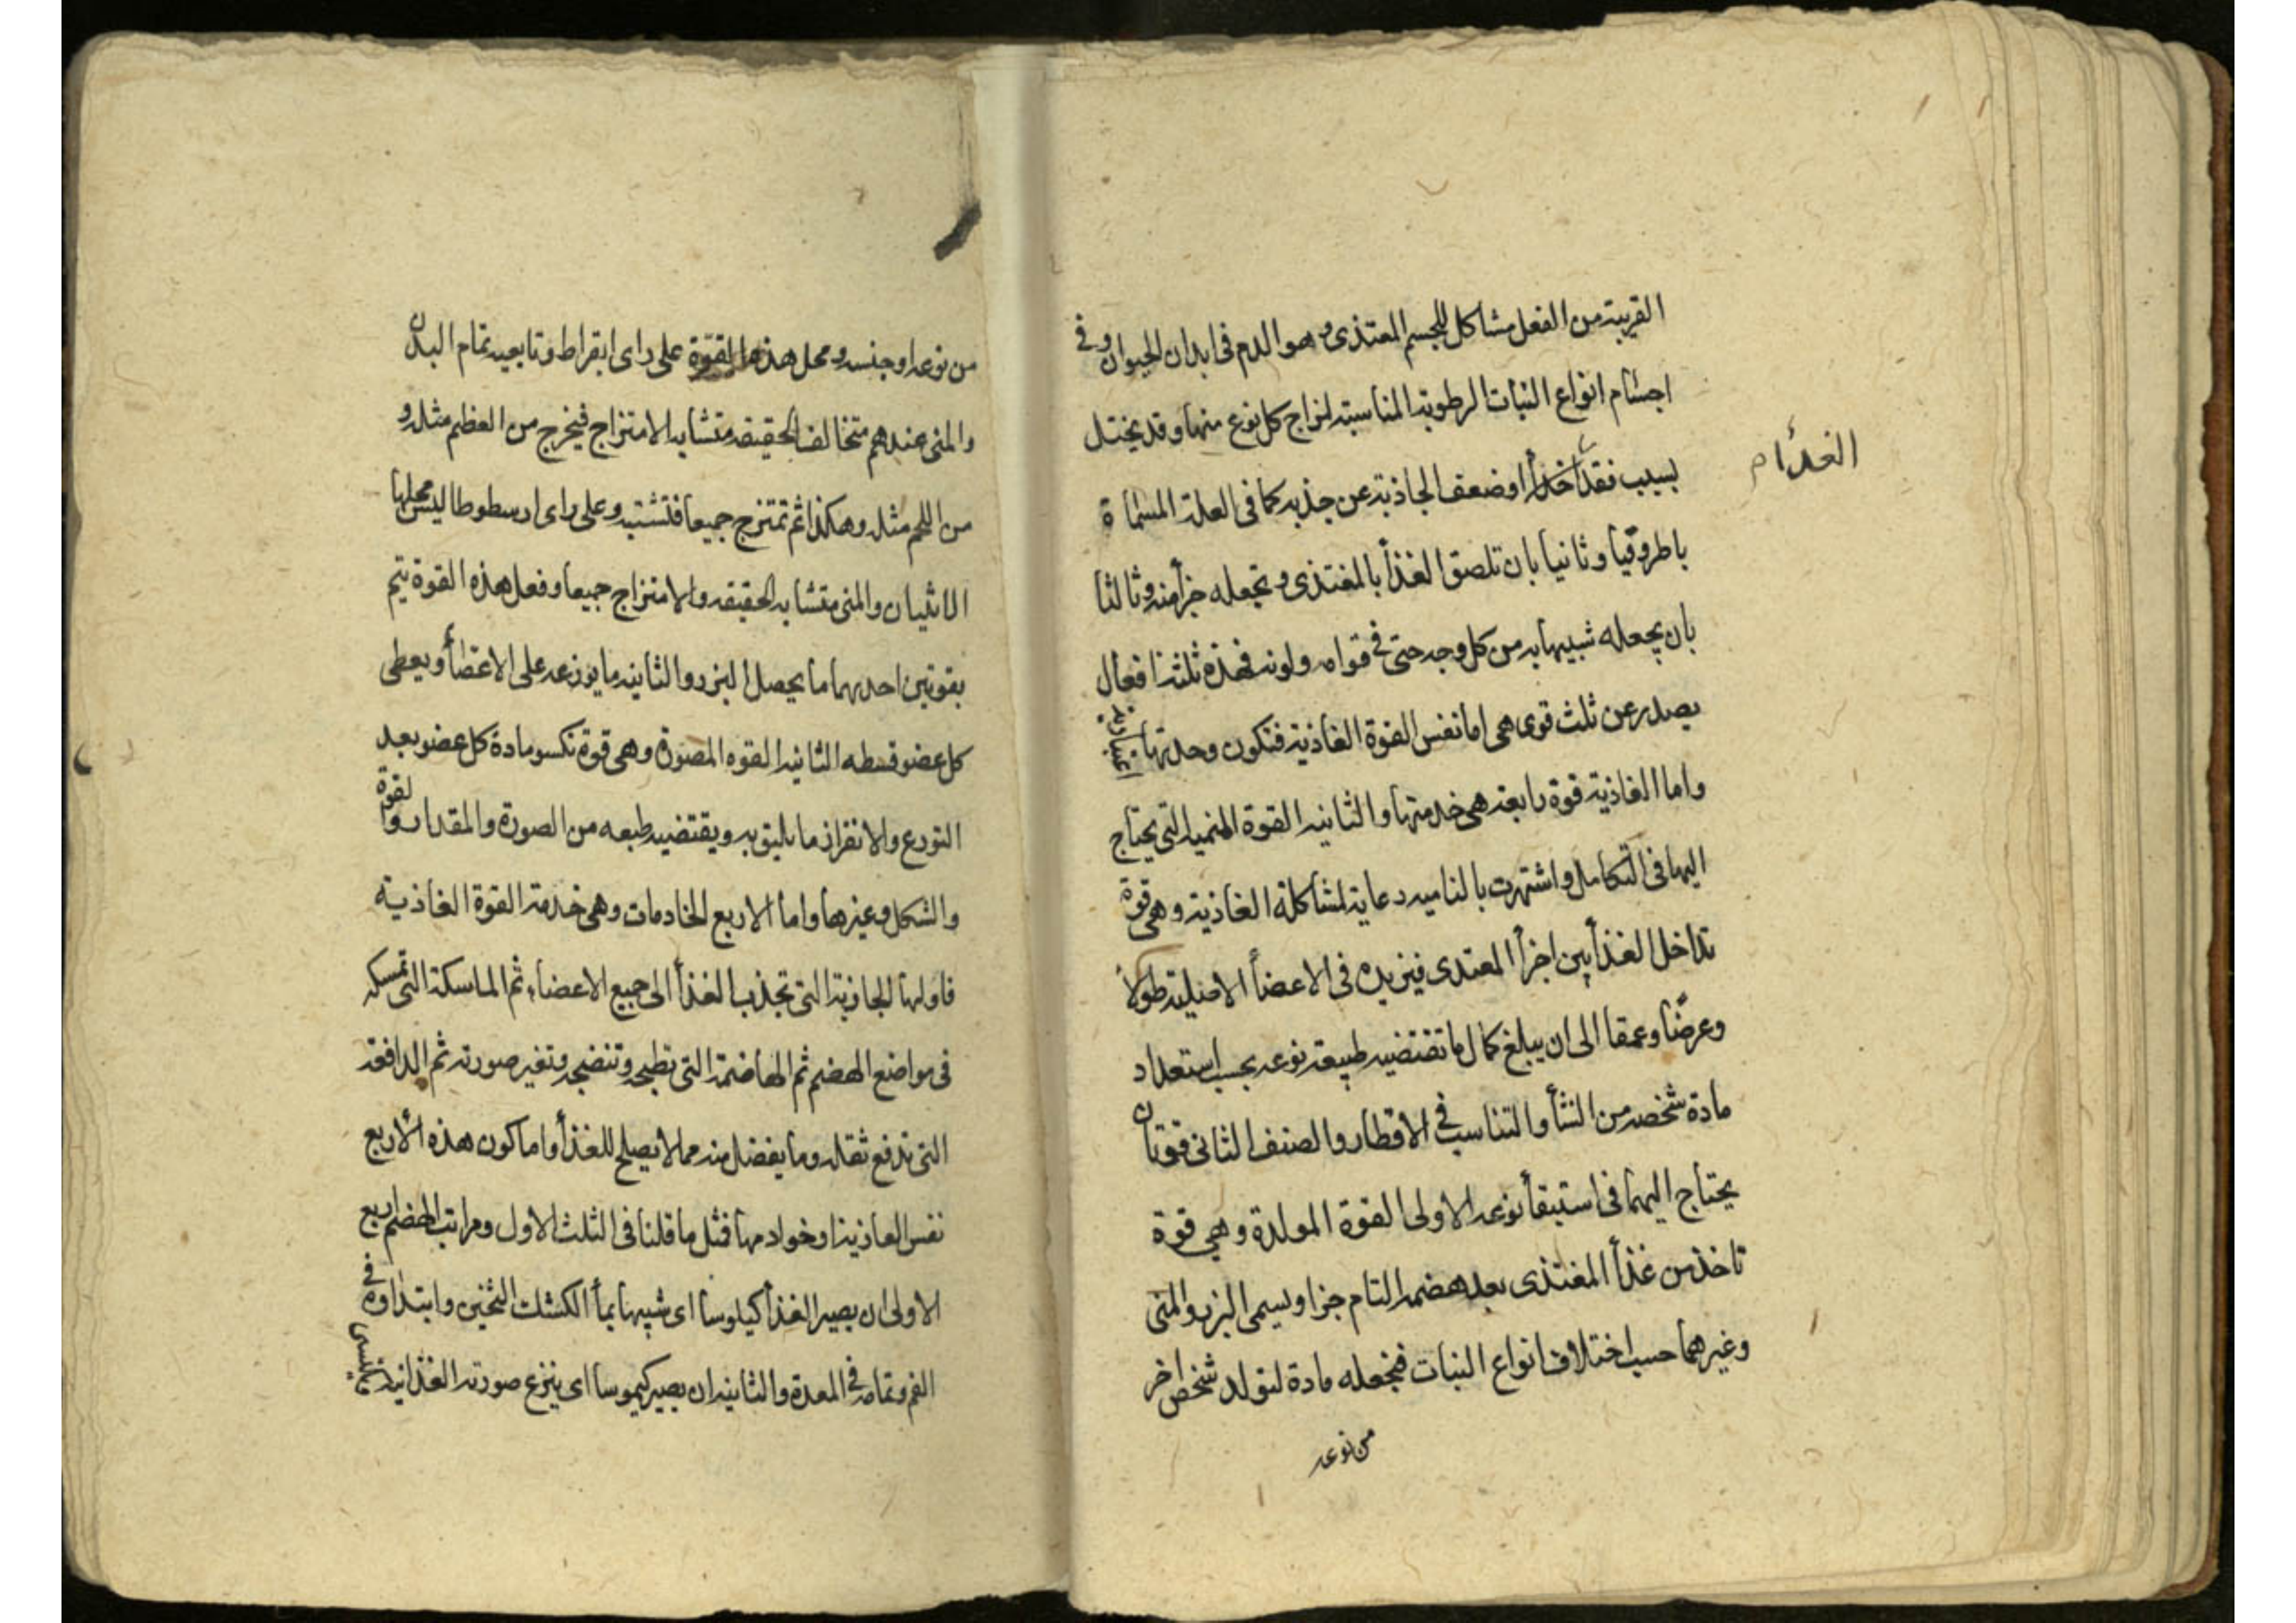 القريبة من الفعل مشاكل للجسم المعتذى وهو الدم فى ابدان الحيوان وفى
اجسام انواع النبات الرطوبة المناسبة لمزاج كل نوع منها وقد يختل
بسبب فقد اخلاأ اوضعف الجاذبة عن جذبه كما فى العلة المسماة
الغدأ ام
باطروقيا وثانيا بان تلصق الغذأ بالمغتذى وتجعله جزأ منه وثالثا
بان يجعله شبيها به من كل وجه حتى فى قوامه ولونه فهذه ثلثة افعال
يصدر عن ثلث قوى هى اما نفس القوة الغاذية فتكون وحدتها اعتبارية
واما الغاذية قوة رابعة هى خدمتها والثانية القوة المنمية التى يحتاج
اليها فى التكامل واشتهرت بالنامية رعاية لمشاكلة الغاذية وهى قوة
تداخل الغذأ بين اجزأ المعتدى فيزيده فى الاعضأ الاصلية طولا
وعرضا وعمقا الى ان يبلغ كمال ما تقتضيه طبيعة نوعه بحسب استعداد
مادة شخصه من النشأ والتناسب فى الاقطار والصنف الثانى قوتان
يحتاج اليهما فى استبقأ نوعه الاولى القوة المولدة وهى قوة
تاخذ من غذأ المغتذى بعد هضمه التام جزا ويسمى البزر والمنى
وغيرهما حسب اختلاف انواع النبات فيجعله مادة لتولد شخص اخر
من نوعه
من نوعه او جنسه ومحل هذه القوّة على راى ابقراط وتابعيه تمام البدن
والمنى عندهم متخالف الحقيقة متشابه الامتزاج فيخرج من العظم مثله و
من اللحم مثله وهكذا ثم تمتزج جميعا فتشتبه وعلى راى ارسطوطاليس محلها
الانثيان والمنى متشابه الحقيقة والامتزاج جميعا وفعل هذه القوة يتم
بقوتين احديهما ما يحصل البزر والثانية ما يوزعه على الاعضأ ويعطى
كل عضو قسطه الثانية القوه المصورة وهى قوة تكسو مادة كل عضو بعد
التوزع والانفراز ما يليق به ويقتضيه طبعه من الصورة والمقدار والقوة
والشكل وغيرها واما الاربع الخادمات وهى خدمة القوة الغاذية
فاولها الجاذبة التى تجذب الغذأ الى جميع الاعضاء ثم الماسكة التى تمسكه
فى مواضع الهضم ثم الهاضمة التى تطبخه وتنضجه وتغير صورته ثم الدافعة
التى تدفع ثقله وما يفضل منه مما لا يصلح للغذأ واما كون هذه الاربع
نفس الغاذية او خوادمها فمثل ما قلنا فى الثلث الاول ومراتب الهضم اربع
الاولى ان يصير الغذأ كيلوسا اى شبيها بمأ الكشك الثخين وابتداوه فى
الفم وتمامه فى المعدة والثانية ان يصير كيموسا اى ينزع صورته الغذائية